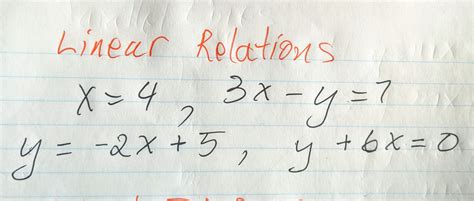 Linear Relations
x = 4 , 3x - y = 7
y = -2x + 5 , y + 6x = 0